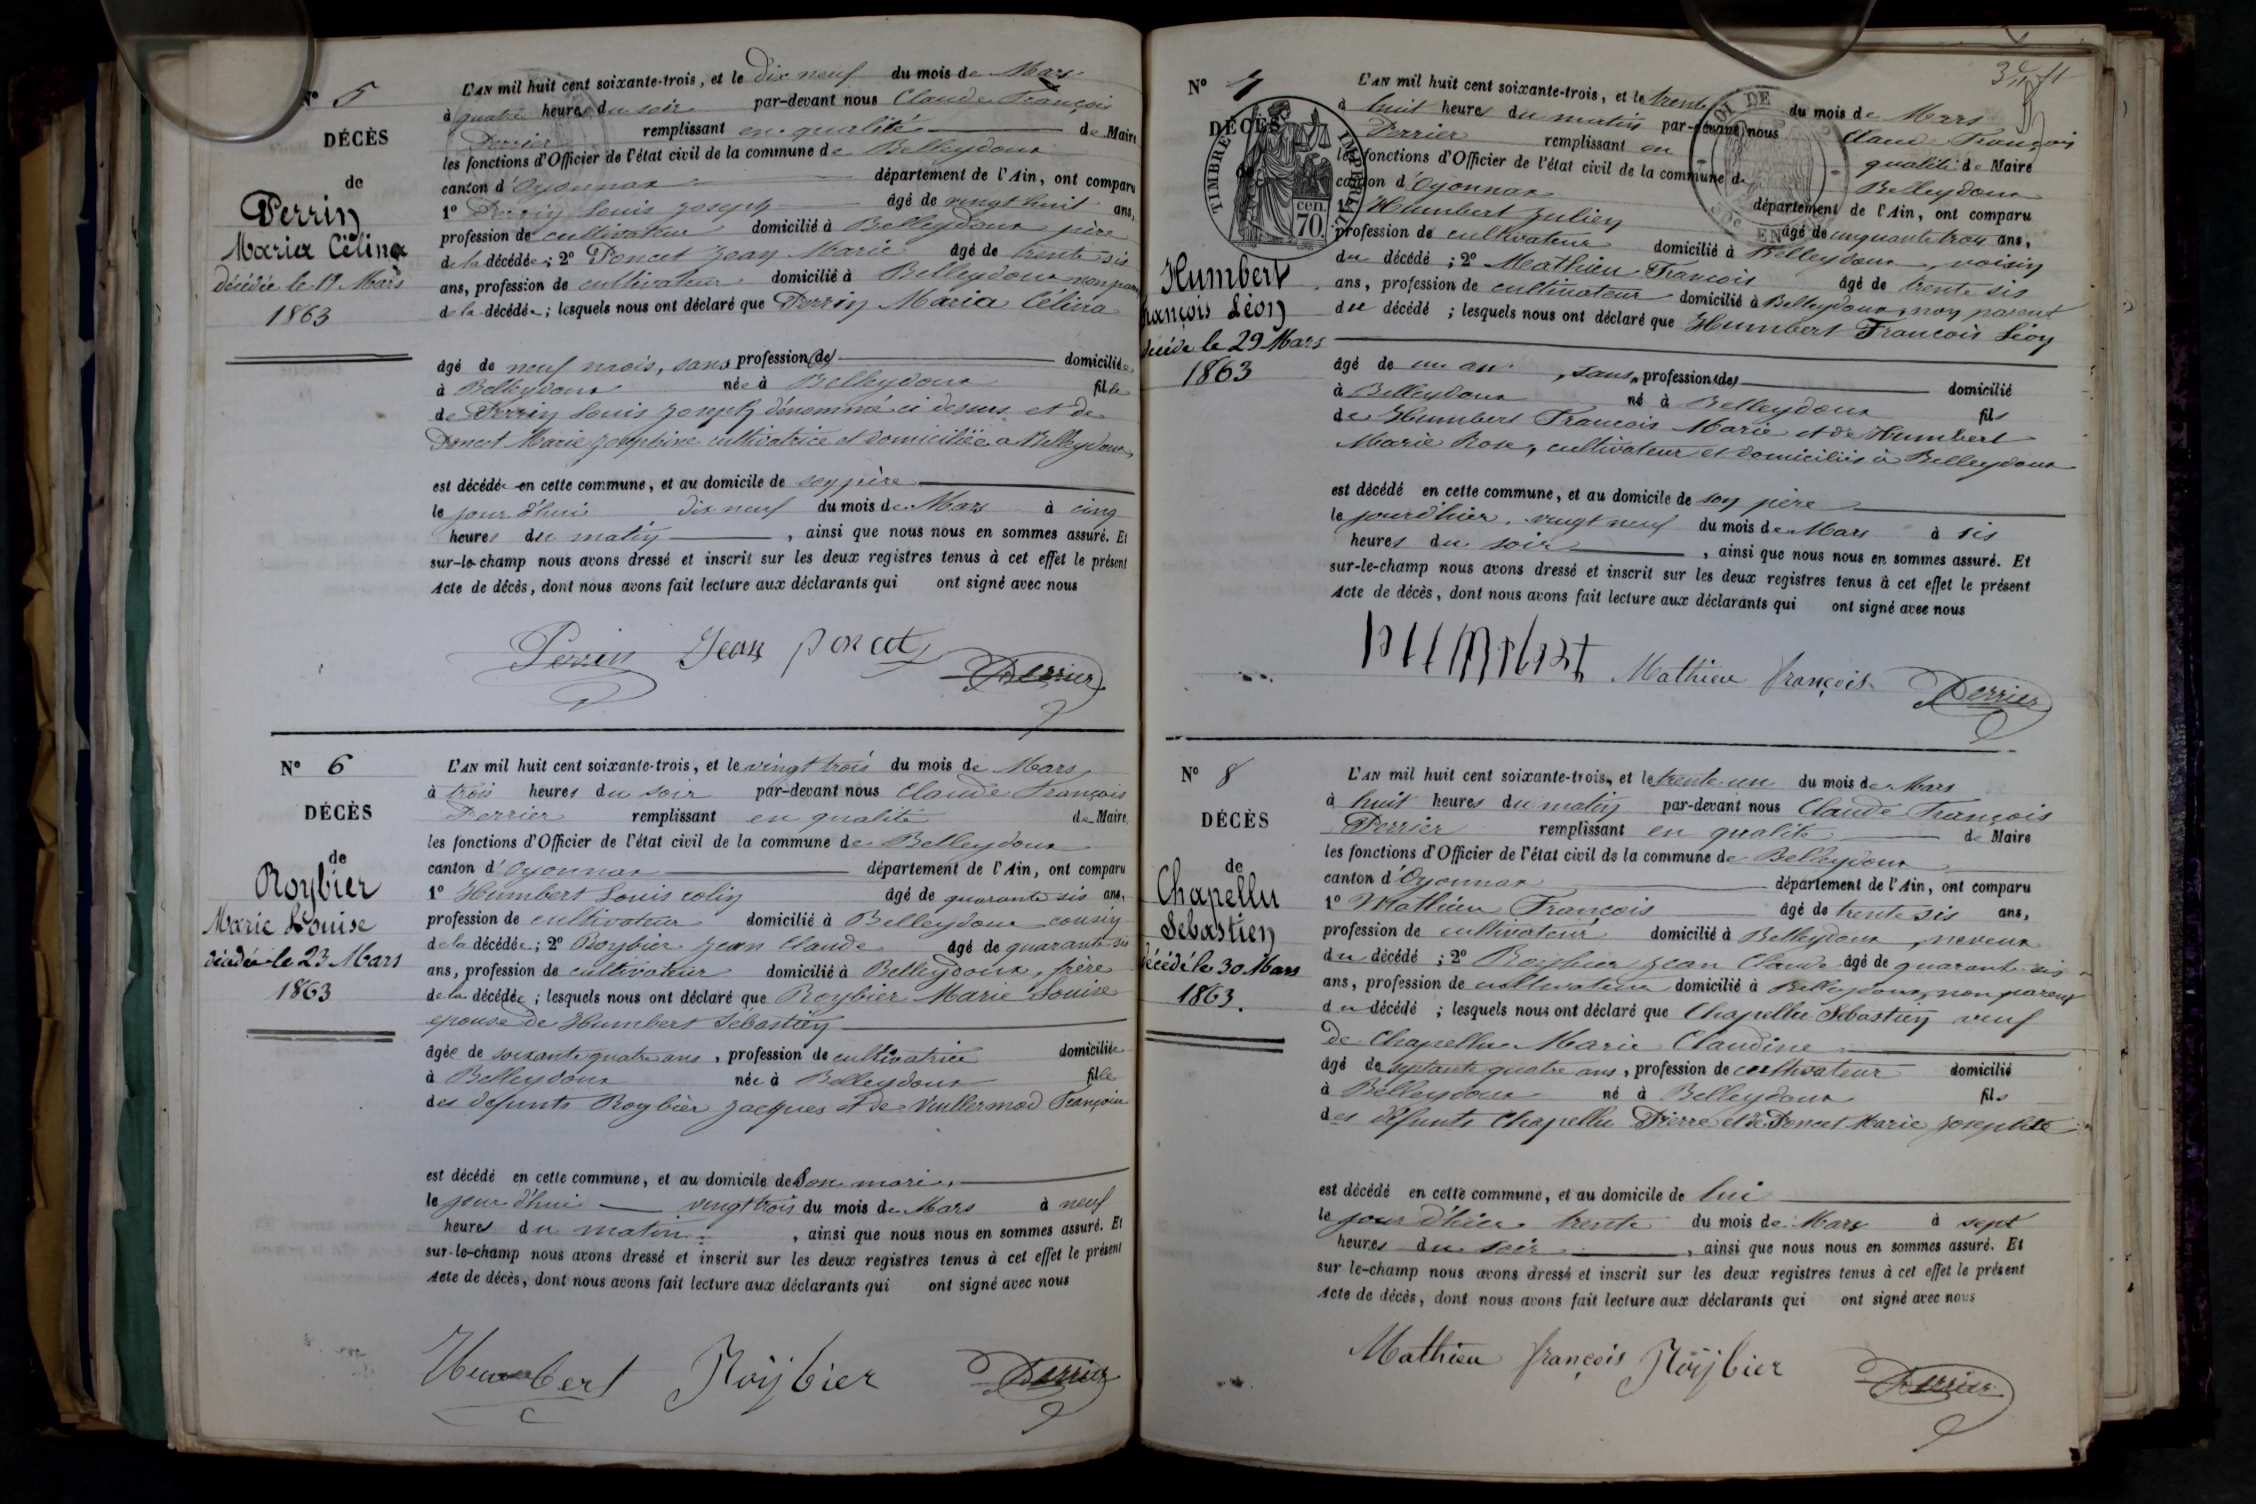 N° 5
DÉCÈS
de
Perrin
Maria Célina
décédée le 19 Mars
1863
L'AN mil huit cent soixante-trois, et le dix neuf du mois de Mars
à quatre heures du soir par-devant nous Claude François
Perrier remplissant en qualité de Maire
les fonctions d'Officier de l'état civil de la commune de Belleydoux
canton d'Oyonnax département de l'Ain, ont comparu
1° Perrin Louis Joseph âgé de vingt huit ans,
profession de cultivateur domicilié à Belleydoux père
de la décédée; 2° Poncet Jean Marie âgé de trente six
ans, profession de cultivateur domicilié à Belleydoux non parent
de la décédée; lesquels nous ont déclaré que Perrin Maria Célina
âgé de neuf mois, sans profession (de) domiciliée
à Belleydoux née à Belleydoux fille
de Perrin Louis Joseph dénommé ci dessus et de
Poncet Marie Josephine cultivatrice et domiciliée a Belleydoux,
est décédée en cette commune, et au domicile de son père
le jour d'hui dix neuf du mois de Mars à cinq
heures du matin, ainsi que nous nous en sommes assuré. Et
sur-le-champ nous avons dressé et inscrit sur les deux registres tenus à cet effet le présent
Acte de décès, dont nous avons fait lecture aux déclarants qui ont signé avec nous
Perrin Jean poncet Perrier
N° 6
DÉCÈS
de
Roybier
Marie Louise
décédée le 23 Mars
1863
L'AN mil huit cent soixante-trois, et le vingt trois du mois de Mars
à trois heures du soir par-devant nous Claude François
Perrier remplissant en qualité de Maire
les fonctions d'Officier de l'état civil de la commune de Belleydoux
canton d'Oyonnax département de l'Ain, ont comparu
1° Humbert Louis colin âgé de quarante six ans,
profession de cultivateur domicilié à Belleydoux cousin
de la décédée; 2° Roybier Jean Claude âgé de quarante six
ans, profession de cultivateur domicilié à Belleydoux, frère
de la décédée; lesquels nous ont déclaré que Roybier Marie Louise
epouse de Humbert Sébastien
âgée de soixante quatre ans, profession de cultivatrice domiciliée
à Belleydoux née à Belleydoux fille
des défunts Roybier Jacques et de Vuillermod Françoise
est décédé en cette commune, et au domicile de Son mari,
le jour d'hui vingt trois du mois de Mars à neuf
heures du matin, ainsi que nous nous en sommes assuré. Et
sur-le-champ nous avons dressé et inscrit sur les deux registres tenus à cet effet le présent
Acte de décès, dont nous avons fait lecture aux déclarants qui ont signé avec nous
Humbert Roÿbier Perrier
N° 7
DÉCÈS
TIMBRE IMPÉRIAL
70 cen.
Humbert
François Léon
décédé le 29 Mars
1863
L'AN mil huit cent soixante-trois, et le trente du mois de Mars
à huit heures du matin par-devant nous Claude François
Perrier remplissant en qualité de Maire
les fonctions d'Officier de l'état civil de la commune de Belleydoux
canton d'Oyonnax département de l'Ain, ont comparu
1° Humbert Julien âgé de cinquante trois ans,
profession de cultivateur domicilié à Belleydoux, voisin
du décédé; 2° Mathieu François âgé de trente six
ans, profession de cultivateur domicilié à Belleydoux, non parent
du décédé; lesquels nous ont déclaré que Humbert François Léon
âgé de un an, sans profession (de) domicilié
à Belleydoux né à Belleydoux fils
de Humbert Francois Marie et de Humbert
Marie Rose, cultivateur et domiciliés à Belleydoux
est décédé en cette commune, et au domicile de son père
le jourd'hier, vingt neuf du mois de Mars à six
heures du soir, ainsi que nous nous en sommes assuré. Et
sur-le-champ nous avons dressé et inscrit sur les deux registres tenus à cet effet le présent
Acte de décès, dont nous avons fait lecture aux déclarants qui ont signé avec nous
Mathieu françois Perrier
N° 8
DÉCÈS
de
Chapellu
Sebastien
décédé le 30 Mars
1863.
L'AN mil huit cent soixante-trois, et le trente un du mois de Mars
à huit heures du matin par-devant nous Claude François
Perrier remplissant en qualité de Maire
les fonctions d'Officier de l'état civil de la commune de Belleydoux
canton d'Oyonnax département de l'Ain, ont comparu
1° Mathieu François âgé de trente six ans,
profession de cultivateur domicilié à Belleydoux, neveux
du décédé; 2° Roybier Jean Claude âgé de quarante six
ans, profession de cultivateur domicilié à Belleydoux, non parent
du décédé; lesquels nous ont déclaré que Chapellu Sébastien veuf
de Chapellu Marie Claudine
âgé de septante quatre ans, profession de cultivateur domicilié
à Belleydoux né à Belleydoux fils
des défunts Chapellu Pierre et de Poncet Marie Josephte
est décédé en cette commune, et au domicile de lui
le jour d'hier trente du mois de Mars à sept
heures du soir, ainsi que nous nous en sommes assuré. Et
sur le-champ nous avons dressé et inscrit sur les deux registres tenus à cet effet le présent
Acte de décès, dont nous avons fait lecture aux déclarants qui ont signé avec nous
Mathieu françois Roÿbier Perrier